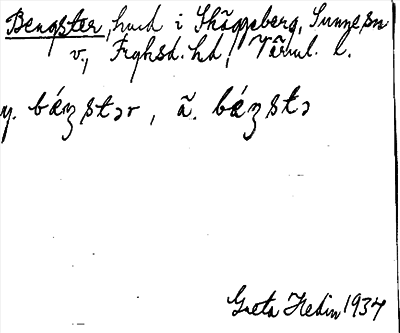 Bengster, hmd i Skäggeberg, Sunne sn
v., Fryksd. hd, Värml. l.
y. báŋstər, ä. báŋstə
Greta Hedin 1934